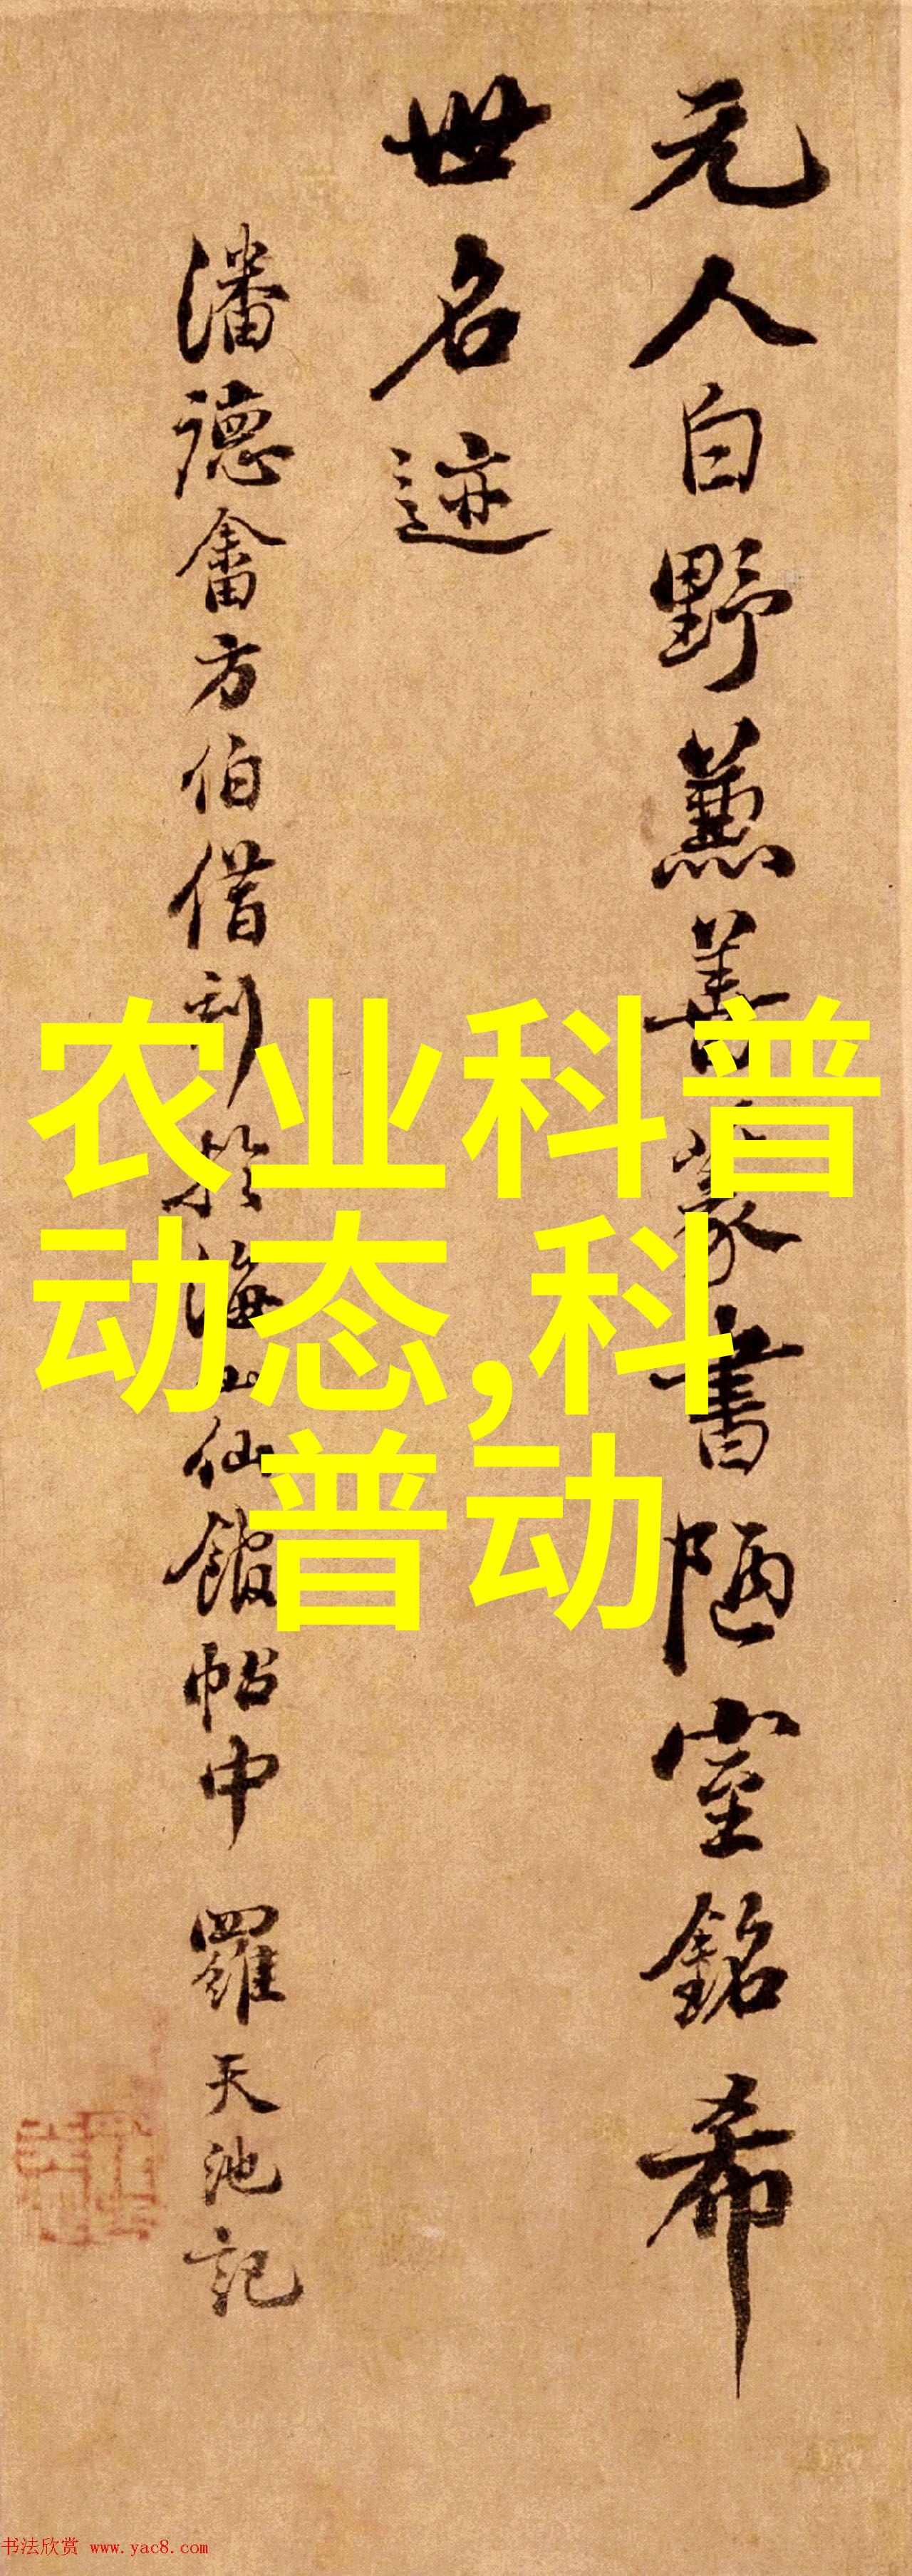 元人白野兼善篆書陋室銘希
世名迹
潘德畬方伯借刻於海山仙館帖中 羅天池記
农业科普
动态,科
普动
书法欣赏 www.yac8.com